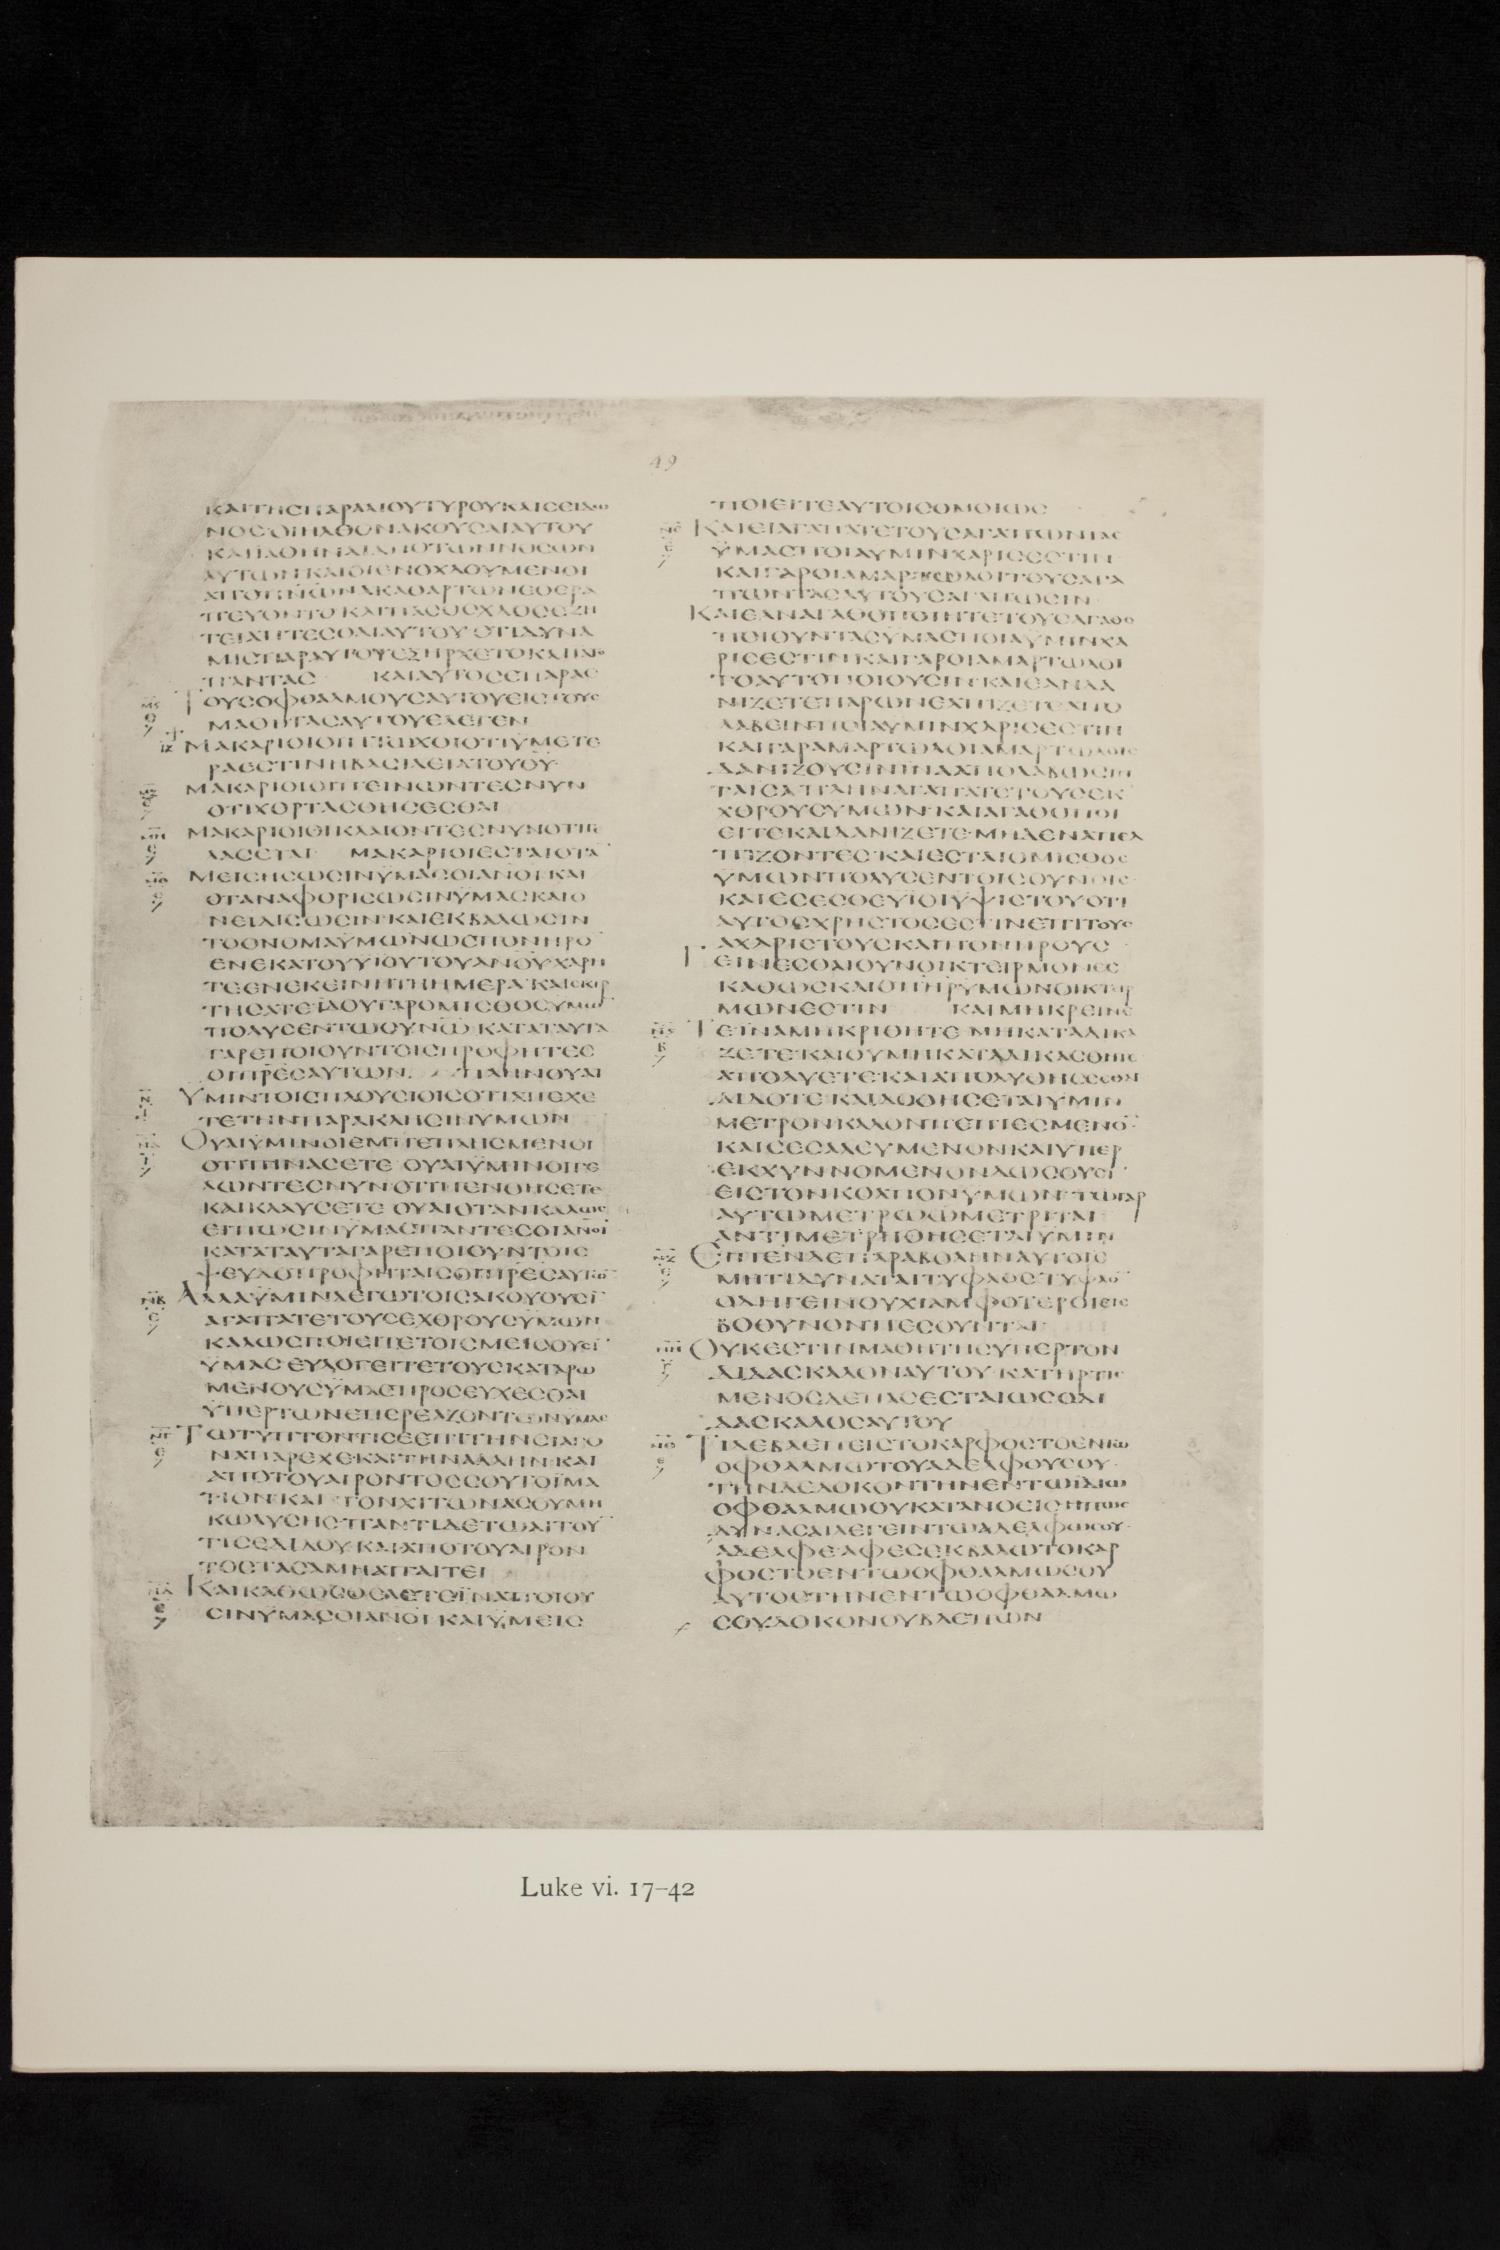 49
ΚΑΙΤΗΣΠΑΡΑΛΙΟΥΤΥΡΟΥΚΑΙΣΕΙΔΩ
ΝΟΣΟΙΗΛΘΟΝΑΚΟΥΣΑΙΑΥΤΟΥ
ΚΑΙΪΑΘΗΝΑΙΑΠΟΤΩΝΝΟΣΩΝ
ΑΥΤΩΝΚΑΙΟΙΕΝΟΧΛΟΥΜΕΝΟΙ
ΑΠΟΠΝΩΝΑΚΑΘΑΡΤΩΝΕΘΕΡΑ
ΠΕΥΟΝΤΟΚΑΙΠΑΣΟΟΧΛΟΣΕΖΗ
ΤΕΙΑΠΤΕΣΘΑΙΑΥΤΟΥΟΤΙΔΥΝΑ
ΜΙΣΠΑΡΑΥΤΟΥΕΞΗΡΧΕΤΟΚΑΙΪΑΤΟ
ΠΑΝΤΑΣ ΚΑΙΑΥΤΟΣΕΠΑΡΑΣ
ΤΟΥΣΟΦΘΑΛΜΟΥΣΑΥΤΟΥΕΙΣΤΟΥΣ
ΜΑΘΗΤΑΣΑΥΤΟΥΕΛΕΓΕΝ
ΜΑΚΑΡΙΟΙΟΙΠΤΩΧΟΙΟΤΙΫΜΕΤΕ
ΡΑΕΣΤΙΝΗΒΑΣΙΛΕΙΑΤΟΥΘΥ
ΜΑΚΑΡΙΟΙΟΙΠΕΙΝΩΝΤΕΣΝΥΝ
ΟΤΙΧΟΡΤΑΣΘΗΣΕΣΘΑΙ
ΜΑΚΑΡΙΟΙΟΙΚΛΑΙΟΝΤΕΣΝΥΝΟΤΙΓΕ
ΛΑΣΕΤΑΙ ΜΑΚΑΡΙΟΙΕΣΤΑΙΟΤΑ
ΜΕΙΣΗΣΩΣΙΝΫΜΑΣΟΙΑΝΟΙΚΑΙ
ΟΤΑΝΑΦΟΡΙΣΩΣΙΝΫΜΑΣΚΑΙΟ
ΝΕΙΔΙΣΩΣΙΝΚΑΙΕΚΒΑΛΩΣΙΝ
ΤΟΟΝΟΜΑΫΜΩΝΩΣΠΟΝΗΡΟ
ΕΝΕΚΑΤΟΥΥΙΟΥΤΟΥΑΝΟΥΧΑΡΗ
ΤΕΕΝΕΚΕΙΝΗΤΗΗΜΕΡΑΚΑΙΣΚΙΡ
ΤΗΣΑΤΕΪΔΟΥΓΑΡΟΜΙΣΘΟΣΥΜΩ
ΠΟΛΥΣΕΝΤΩΟΥΝΩΚΑΤΑΤΑΥΤΑ
ΓΑΡΕΠΟΙΟΥΝΤΟΙΣΠΡΟΦΗΤΕΣ
ΟΙΠΡΕΣΑΥΤΩΝ. ΠΛΗΝΟΥΑΙ
ΥΜΙΝΤΟΙΣΠΛΟΥΣΙΟΙΣΟΤΙΑΠΕΧΕ
ΤΕΤΗΝΠΑΡΑΚΛΗΣΙΝΥΜΩΝ
ΟΥΑΙΫΜΙΝΟΙΕΜΠΕΠΛΗΣΜΕΝΟΙ
ΟΤΙΠΙΝΑΣΕΤΕΟΥΑΙΫΜΙΝΟΙΓΕ
ΛΩΝΤΕΣΝΥΝΟΤΙΠΕΝΘΗΣΕΤΕ
ΚΑΙΚΛΑΥΣΕΤΕΟΥΑΙΟΤΑΝΚΑΛΩΣ
ΕΙΠΩΣΙΝΫΜΑΣΠΑΝΤΕΣΟΙΑΝΟΙ
ΚΑΤΑΤΑΥΤΑΓΑΡΕΠΟΙΟΥΝΤΟΙΣ
ΨΕΥΔΟΠΡΟΦΗΤΑΙΣΟΙΠΡΕΣΑΥΤΩ
ΑΛΛΑΫΜΙΝΛΕΓΩΤΟΙΣΑΚΟΥΟΥΣΙ
ΑΓΑΠΑΤΕΤΟΥΣΕΧΘΡΟΥΣΥΜΩΝ
ΚΑΛΩΣΠΟΙΕΙΤΕΤΟΙΣΜΕΙΣΟΥΣΙ
ΫΜΑΣΕΥΛΟΓΕΙΤΕΤΟΥΣΚΑΤΑΡΩ
ΜΕΝΟΥΣΫΜΑΣΠΡΟΣΕΥΧΕΣΘΑΙ
ΫΠΕΡΤΩΝΕΠΕΡΕΑΖΟΝΤΩΝΥΜΑΣ
ΤΩΤΥΠΤΟΝΤΙΣΕΕΠΙΤΗΝΣΙΑΓΟ
ΝΑΠΑΡΕΧΕΚΑΙΤΗΝΑΛΛΗΝΚΑΙ
ΑΠΟΤΟΥΑΙΡΟΝΤΟΣΣΟΥΤΟΪΜΑ
ΤΙΟΝΚΑΙΤΟΝΧΙΤΩΝΑΣΟΥΜΗ
ΚΩΛΥΣΗΣΠΑΝΤΙΔΕΤΩΑΙΤΟΥ
ΤΙΣΕΔΙΔΟΥΚΑΙΑΠΟΤΟΥΑΙΡΟΝ
ΤΟΣΤΑΣΑΜΗΑΠΑΙΤΕΙ
ΚΑΙΚΑΘΩΣΘΕΛΕΤΕΪΝΑΠΟΙΟΥ
ΣΙΝΫΜΑΣΟΙΑΝΟΙΚΑΙΫΜΕΙΣ
ΠΟΙΕΙΤΕΑΥΤΟΙΣΟΜΟΙΩΣ
ΚΑΙΕΙΑΓΑΠΑΤΕΤΟΥΣΑΓΑΠΩΝΤΑΣ
ΫΜΑΣΠΟΙΑΥΜΙΝΧΑΡΙΣΕΣΤΙΝ
ΚΑΙΓΑΡΟΙΑΜΑΡΤΩΛΟΙΤΟΥΣΑΓΑ
ΠΩΝΤΑΣΑΥΤΟΥΣΑΓΑΠΩΣΙΝ
ΚΑΙΕΑΝΑΓΑΘΟΠΟΙΗΤΕΤΟΥΣΑΓΑΘΟ
ΠΟΙΟΥΝΤΑΣΫΜΑΣΠΟΙΑΫΜΙΝΧΑ
ΡΙΣΕΣΤΙΝΚΑΙΓΑΡΟΙΑΜΑΡΤΩΛΟΙ
ΤΟΑΥΤΟΠΟΙΟΥΣΙΝΚΑΙΕΑΝΔΑ
ΝΙΖΕΤΕΠΑΡΩΝΕΛΠΙΖΕΤΕΑΠΟ
ΛΑΒΕΙΝΠΟΙΑΥΜΙΝΧΑΡΙΣΕΣΤΙΝ
ΚΑΙΓΑΡΑΜΑΡΤΩΛΟΙΑΜΑΡΤΩΛΟΙΣ
ΔΑΝΙΖΟΥΣΙΝΙΝΑΑΠΟΛΑΒΩΣΙΝ
ΤΑΙΣΑΠΛΗΝΑΓΑΠΑΤΕΤΟΥΣΕΚ
ΧΘΡΟΥΣΥΜΩΝΚΑΙΑΓΑΘΟΠΟΙ
ΕΙΤΕΚΑΙΔΑΝΙΖΕΤΕΜΗΔΕΝΑΠΕΛ
ΠΙΖΟΝΤΕΣΚΑΙΕΣΤΑΙΟΜΙΣΘΟΣ
ΫΜΩΝΠΟΛΥΣΕΝΤΟΙΣΟΥΝΟΙΣ
ΚΑΙΕΣΕΣΘΕΥΙΟΙΥΨΙΣΤΟΥΟΤΙ
ΑΥΤΟΣΧΡΗΣΤΟΣΕΣΤΙΝΕΠΙΤΟΥΣ
ΑΧΑΡΙΣΤΟΥΣΚΑΙΠΟΝΗΡΟΥΣ
ΓΕΙΝΕΣΘΑΙΟΥΝΟΙΚΤΕΙΡΜΟΝΕΣ
ΚΑΘΩΣΚΑΙΟΠΗΡΥΜΩΝΟΙΚΤΙΡ
ΜΩΝΕΣΤΙΝ ΚΑΙΜΗΚΡΕΙΝΕ
ΤΕΪΝΑΜΗΚΡΙΘΗΤΕΜΗΚΑΤΑΔΙΚΑ
ΖΕΤΕΚΑΙΟΥΜΗΚΑΤΑΔΙΚΑΣΘΗΤΕ
ΑΠΟΛΥΕΤΕΚΑΙΑΠΟΛΥΘΗΣΕΣΘΑΙ
ΔΙΔΟΤΕΚΑΙΔΟΘΗΣΕΤΑΙΥΜΙΝ
ΜΕΤΡΟΝΚΑΛΟΝΠΕΠΙΕΣΜΕΝΟ
ΚΑΙΣΕΣΑΛΕΥΜΕΝΟΝΚΑΙΥΠΕΡ
ΕΚΧΥΝΝΟΜΕΝΟΝΔΩΣΟΥΣΙ
ΕΙΣΤΟΝΚΟΛΠΟΝΥΜΩΝΤΩΓΑΡ
ΑΥΤΩΜΕΤΡΩΩΜΕΤΡΙΤΑΙ
ΑΝΤΙΜΕΤΡΗΘΗΣΕΤΑΙΥΜΙΝ
ΕΙΠΕΝΔΕΠΑΡΑΒΟΛΗΝΑΥΤΟΙΣ
ΜΗΤΙΔΥΝΑΤΑΙΤΥΦΛΟΣΤΥΦΛΟ
ΟΔΗΓΕΙΝΟΥΧΙΑΜΦΟΤΕΡΟΙΕΙΣ
ΒΟΘΥΝΟΝΠΕΣΟΥΝΤΑΙ
ΟΥΚΕΣΤΙΝΜΑΘΗΤΗΣΥΠΕΡΤΟΝ
ΔΙΔΑΣΚΑΛΟΝΑΥΤΟΥΚΑΤΗΡΤΙΣ
ΜΕΝΟΣΔΕΠΑΣΕΣΤΑΙΩΣΟΔΙ
ΔΑΣΚΑΛΟΣΑΥΤΟΥ
ΤΙΔΕΒΛΕΠΕΙΣΤΟΚΑΡΦΟΣΤΟΕΝΤΩ
ΟΦΘΑΛΜΩΤΟΥΑΔΕΛΦΟΥΣΟΥ
ΤΗΝΔΕΔΟΚΟΝΤΗΝΕΝΤΩΪΔΙΩ
ΟΦΘΑΛΜΩΟΥΚΑΤΑΝΟΕΙΣΗΠΩΣ
ΔΥΝΑΣΑΙΛΕΓΕΙΝΤΩΑΔΕΛΦΩΣΟΥ
ΑΔΕΛΦΕΑΦΕΣΕΚΒΑΛΩΤΟΚΑΡ
ΦΟΣΤΟΕΝΤΩΟΦΘΑΛΜΩΣΟΥ
ΑΥΤΟΣΤΗΝΕΝΤΩΟΦΘΑΛΜΩ
ΣΟΥΔΟΚΟΝΟΥΒΛΕΠΩΝ
Luke vi. 17–42